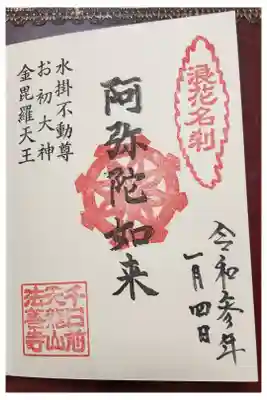 浪花名刹
阿弥陀如来
水掛不動尊
お初大神
金毘羅天王
令和参年
一月四日
千日前
天龍山
法善寺